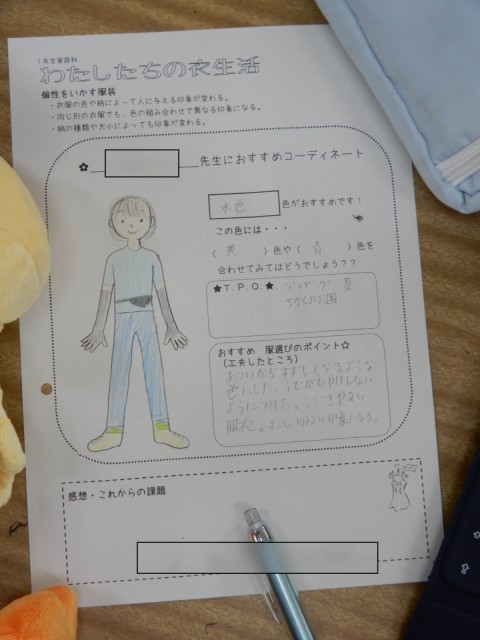 1年生家庭科
わたしたちの衣生活
個性をいかす服装
・衣服の色や柄によって人に与える印象が変わる。
・同じ形の衣服でも、色の組み合わせで異なる印象になる。
・柄の種類や大小によっても印象が変わる。
先生におすすめコーディネート
水色 色がおすすめです!
この色には・・・
( 黄 )色や( 青 )色を
合わせてみてはどうでしょう??
★T.P.O.★ ジョギング 夏
ちかくの公園
おすすめ 服選びのポイント☆
(工夫したところ)
あついからすずしくなるような
色にした。うでが日やけしない
ようにつけた。うごきやすい
服にした。すこし明るい印象になる。
感想・これからの課題